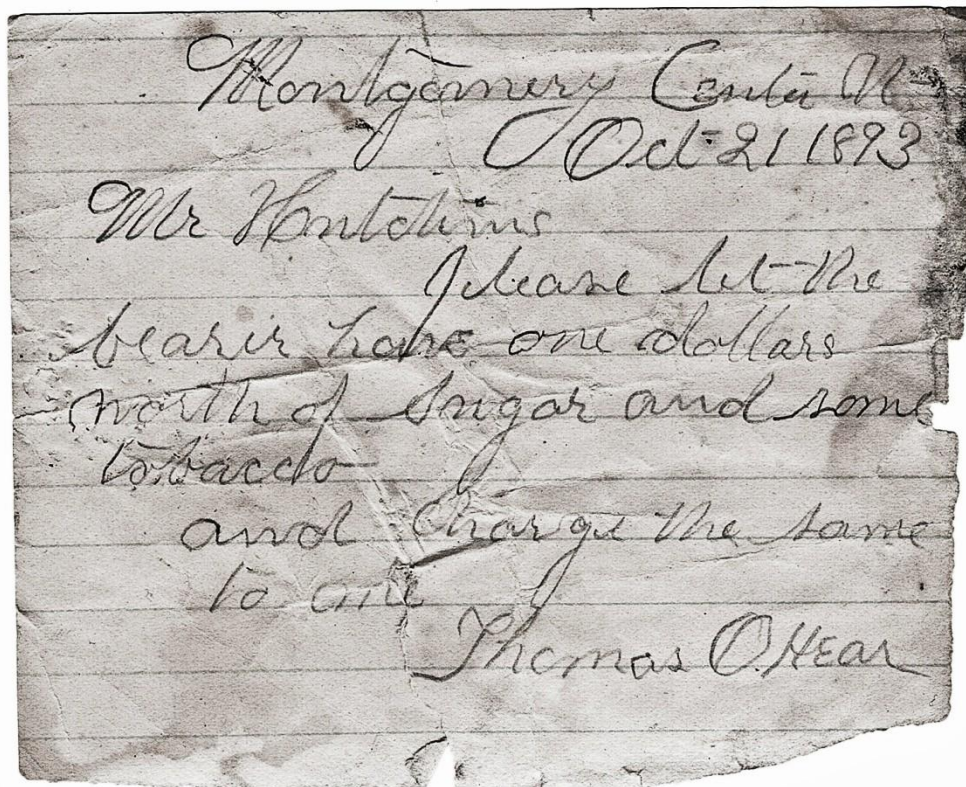 Montgomery Center
Oct 21 1893
Mr Hutchins
Please let the
bearer have one dollars
worth of Sugar and some
tobacco
and Charge the same
to me
Thomas O.Hear